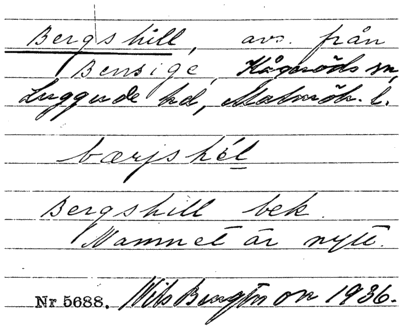 Bergshill, avs. från
Bensige, Kågeröds sn,
Luggude hd, Malmöh. l.
bærjshél
Bergshill bek.
Namnet är nytt.
Nr 5688. Nils Bengtson 1936.